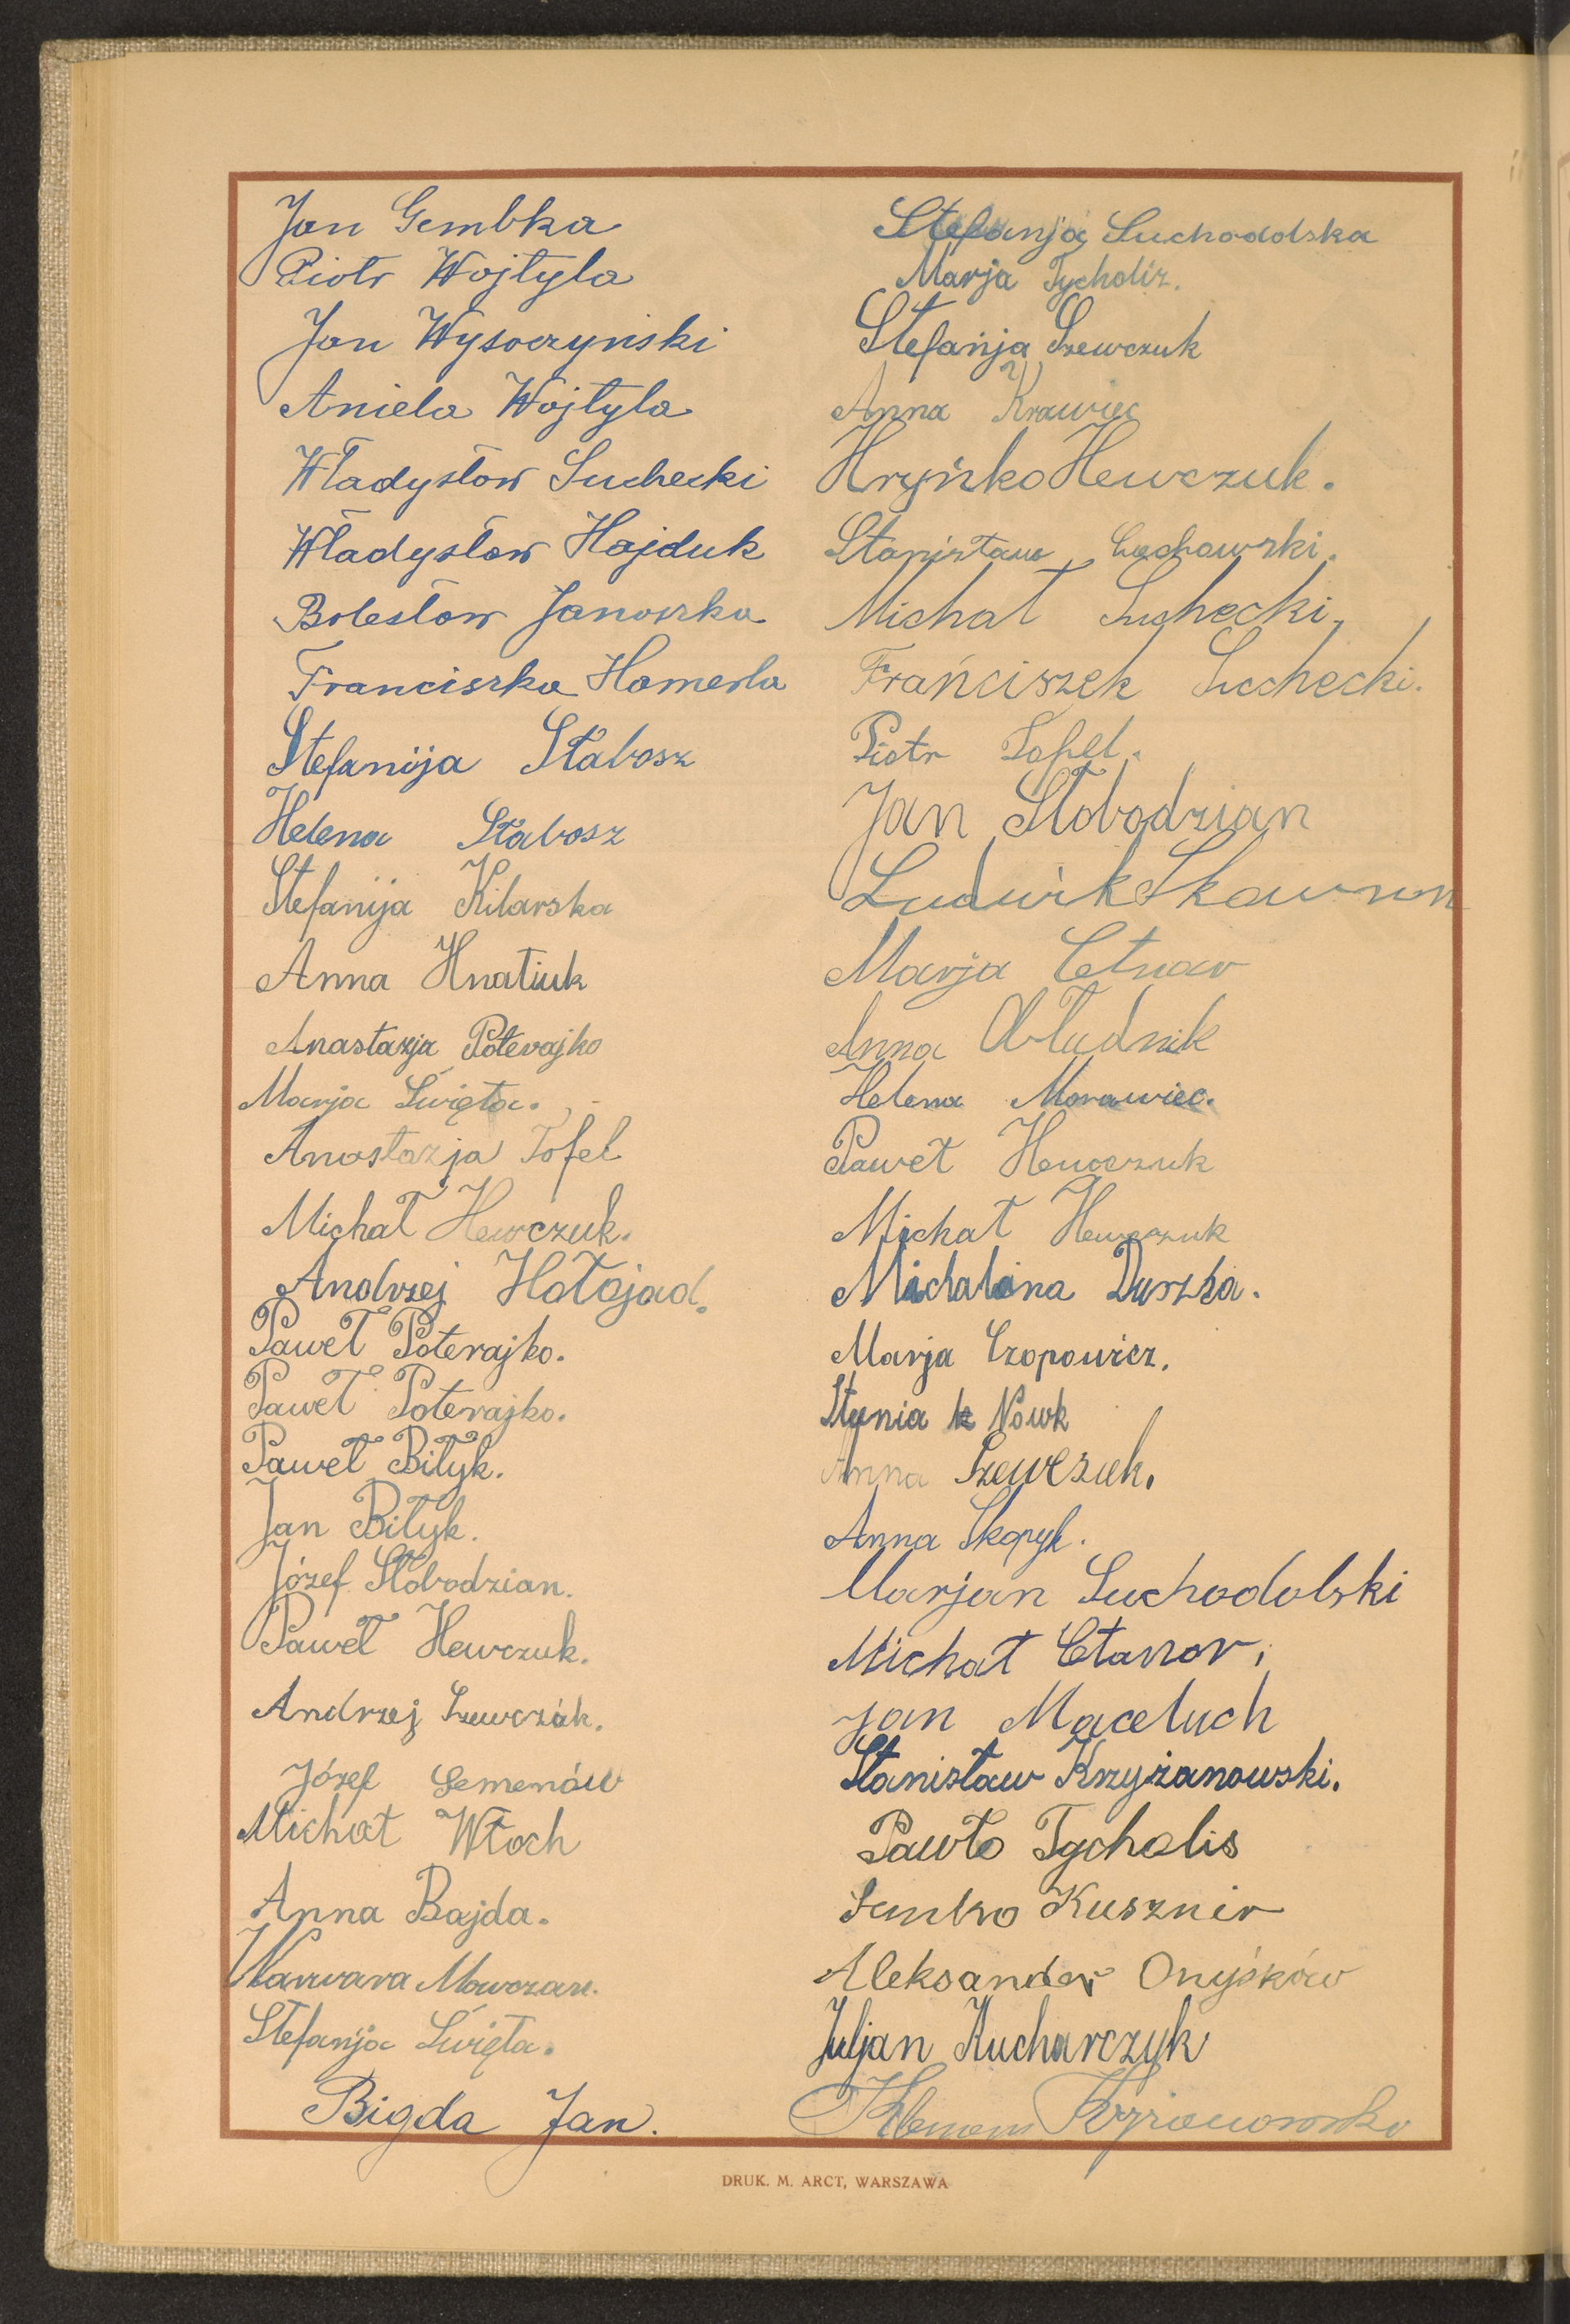 Jan Gembka
Piotr Wojtyla
Jan Wysoczyński
Aniela Wojtyla
Władysław Suchecki
Władysław Hajduk
Bolesław Janoszka
Franciszka Hamerla
Stefanija Słabosz
Helena Słabosz
Stefanija Kilarska
Anna Hnatiuk
Anastazja Poterajko
Marja Święta.
Anastazja Tofel
Michał Hewczuk.
Andrzej Hołojad.
Paweł Poterajko.
Paweł Poterajko.
Paweł Biłyk.
Jan Biłyk.
Józef Słobodzian.
Paweł Hewczuk.
Andrzej Szewczuk.
Józef Semenów
Michał Włoch
Anna Bajda.
Warwara Mowczan.
Stefanja Święta.
Bigda Jan.
Stefanja Suchodolska
Marja Tycholiz.
Stefanja Szewczuk
Anna Krawiec
Hryńko Hewczuk.
Stanisław Lachowski.
Michał Suchecki.
Franciszek Suchecki.
Piotr Tofel.
Jan Słobodzian
Ludwik Skowron
Marja Cetnar
Anna Obłudnik
Helena Morawiec.
Paweł Hewczuk
Michał Hewczuk
Michalina Duszka.
Marja Czopowicz.
Nowk
Anna Szewczuk.
Anna Skopyk.
Marjan Suchodolski
Michał Ctanar
Jan Maceluch
Stanisław Krzyżanowski.
Pawło Tycholis
Semko Kusznir
Aleksander Onyśków
Juljan Kucharczyk
DRUK. M. ARCT, WARSZAWA